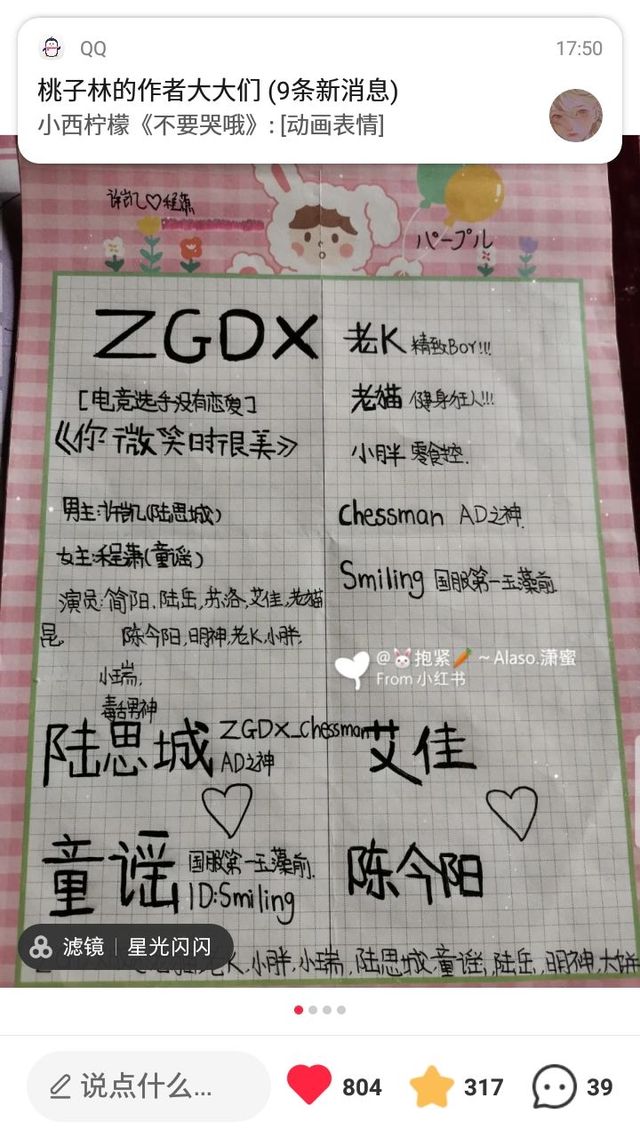 QQ
17:50
桃子林的作者大大们 (9条新消息)
小西柠檬《不要哭哦》: [动画表情]
许凯♡程潇
パープル
ZGDX
[电竞选手没有恋爱]
《你微笑时很美》
男主:许凯(陆思城)
女主:程潇(童谣)
演员:简阳.陆岳,苏洛,艾佳,老猫
昆 陈今阳,明神,老K,小胖,
小瑞,
毒舌男神
陆思城 ZGDX_Chessman
AD之神
童谣 国服第一玉藻前.
ID:Smiling
老K 精致BOY!!!
老猫 健身狂人!!!
小胖 零食控.
Chessman AD之神
Smiling 国服第一玉藻前
@🐰抱紧🥕 ~ Alaso.潇蜜
From 小红书
艾佳
陈今阳
老K,小胖,小瑞,陆思城,童谣,陆岳,明神,大饼
滤镜 | 星光闪闪
说点什么...
804
317
39